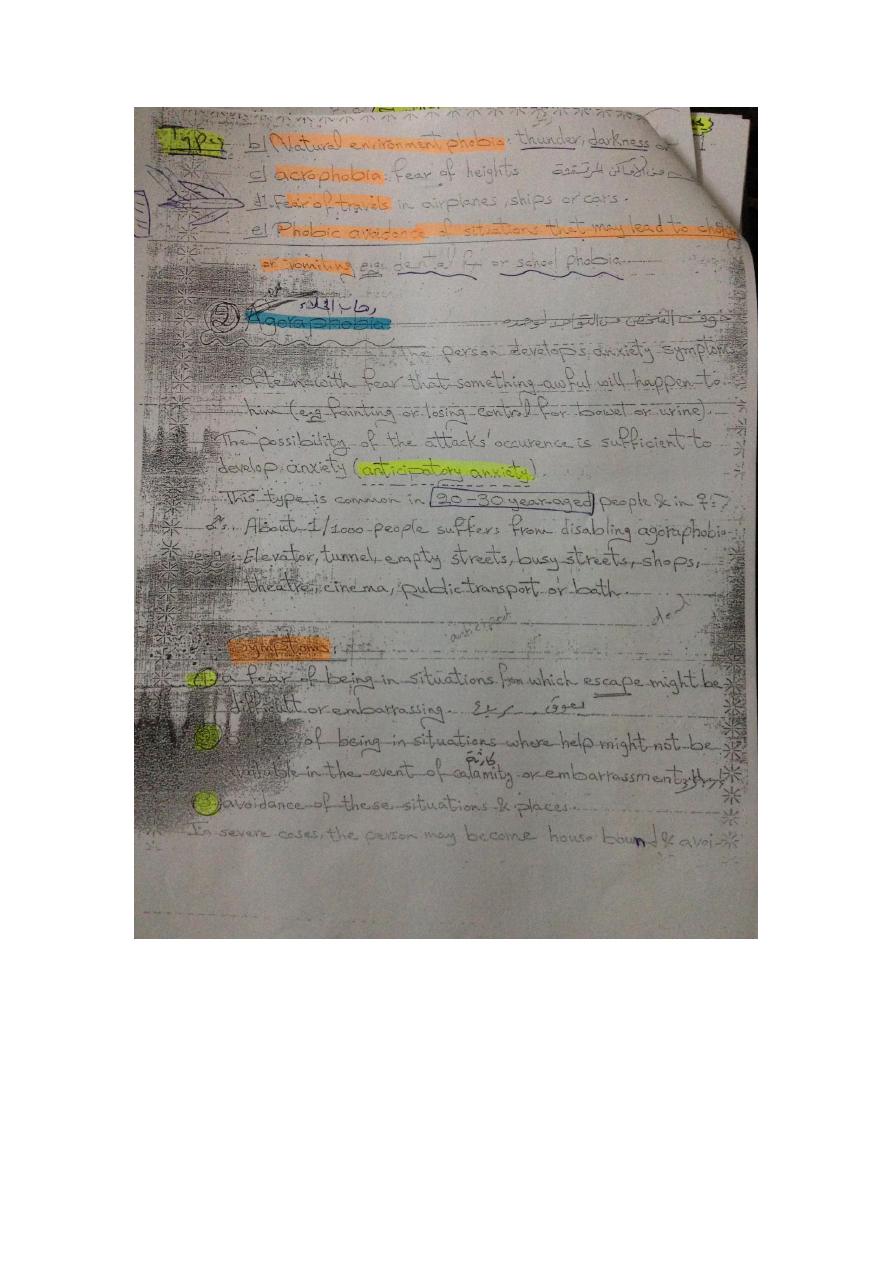 Types b) Natural environment phobia: thunder, darkness or
c) acrophobia: fear of heights
d) Fear of travels in airplanes, ships or cars.
e) Phobic avoidance of situations that may lead to
or vomiting e.g. dental or school phobia
رهاب الخلاء
② Agoraphobia
the person develops anxiety symptoms
often with fear that something awful will happen to
him (e.g fainting or losing control for bowel or urine).
The possibility of the attacks' occurence is sufficient to
develop anxiety (anticipatory anxiety).
This type is common in 20-30 year-aged people & in ♀: >
♂. About 1/1000 people suffers from disabling agoraphobia
e.g: Elevator, tunnel, empty streets, busy streets, shops,
theatre, cinema, public transport or bath.
Symptoms:
① a fear of being in situations from which escape might be
difficult or embarrassing.
② of being in situations where help might not be
كارثة
available in the event of calamity or embarrassment
③ avoidance of these situations & places.
In severe cases, the person may become house bound & avoi-